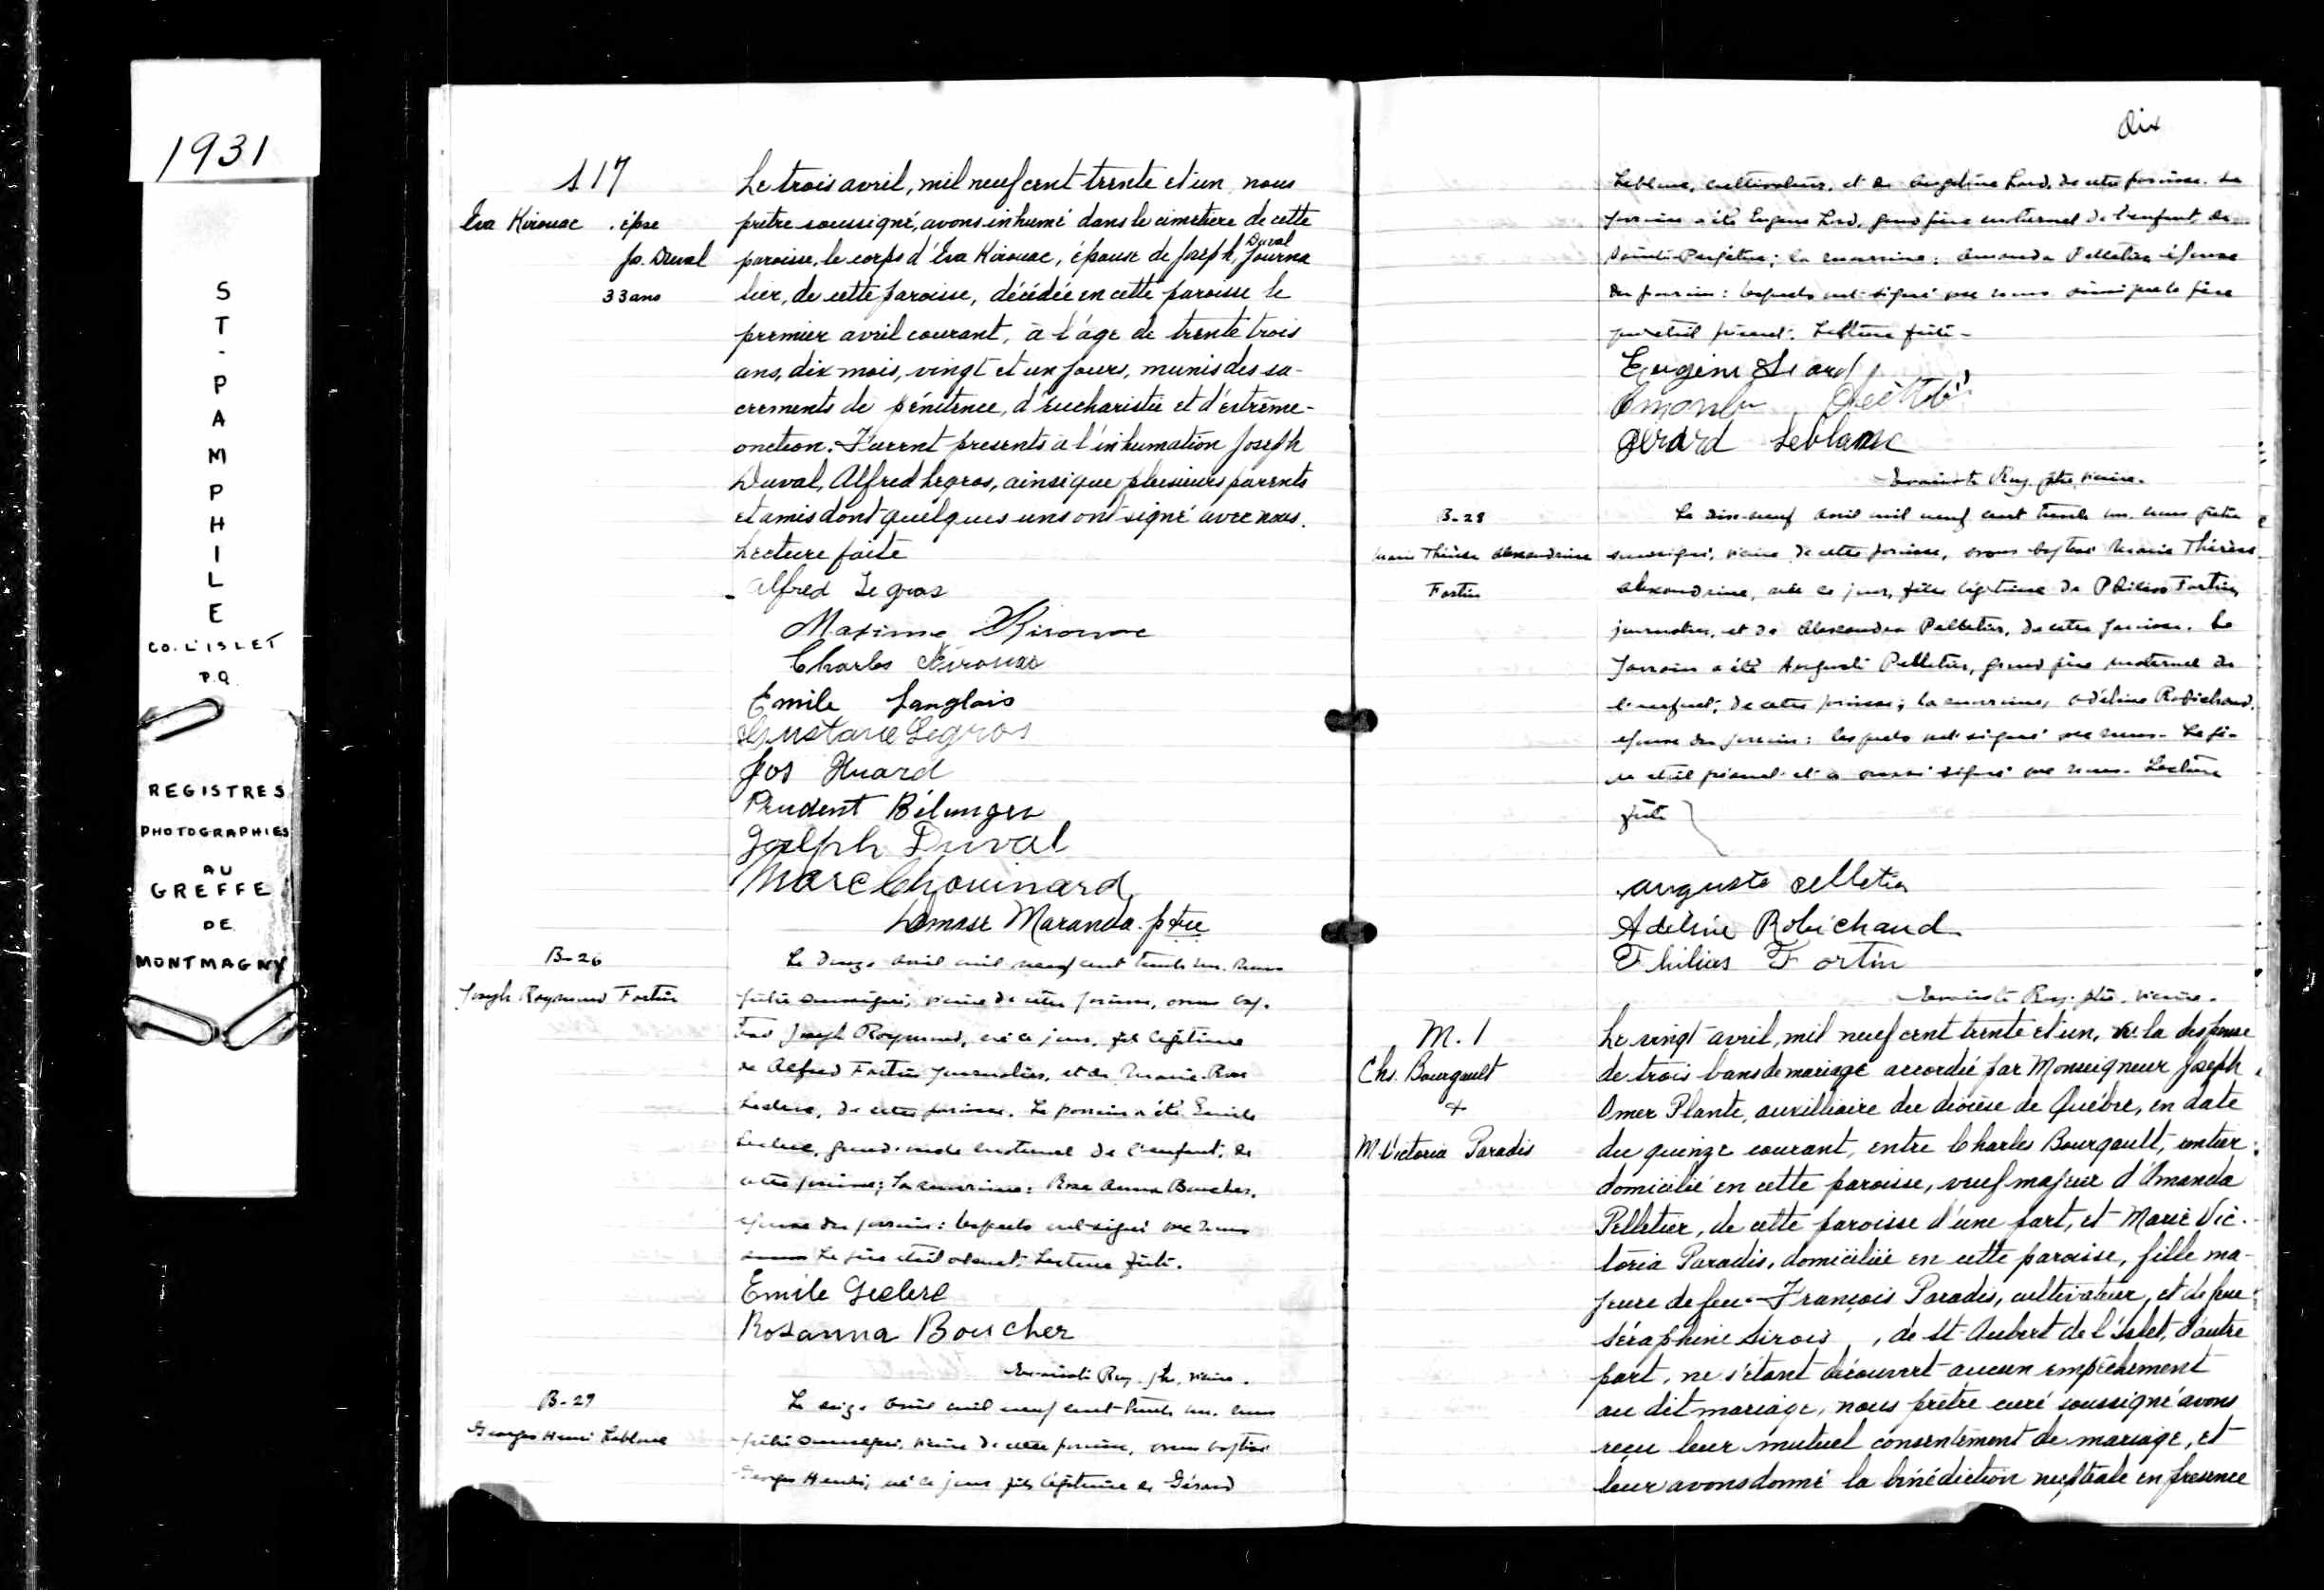 1931
ST-PAMPHILE
CO. L'ISLET
P.Q.
REGISTRES
PHOTOGRAPHIES
AU
GREFFE
DE
MONTMAGNY
S 17
Eva Kirouac . épse
Jos. Duval
33 ans
Le trois avril, mil neuf cent trente et un nous
prêtre soussigné, avons inhumé dans le cimetière de cette
Duval
paroisse, le corps d'Eva Kirouac, épouse de Joseph, journa
lier, de cette paroisse, décédée en cette paroisse le
premier avril courant, à l'âge de trente trois
ans, dix mois, vingt et un jours, munis des sa-
crements de pénitence, d'Eucharistie et d'extrême-
onction. Furent presents à l'inhumation Joseph
Duval, Alfred Legros, ainsi que plusieurs parents
et amis dont quelques uns ont signé avec nous.
Lecture faite
Alfred Legros
Maxime Kirouac
Charles Kirouac
Emile Langlois
Gustave Legros
Jos Huard
Prudent Bélanger
Joseph Duval
Marc Chouinard
Maranda ptre
B-26
Joseph Raymond Fortin
Le douze avril mil neuf cent trente un. nous
prêtre soussigné, vicaire de cette paroisse, avons bap-
tisé Joseph Raymond, né ce jour, fils légitime
de Alfred Fortin journalier, et de Marie-Rose
Leclerc, de cette paroisse. Le parrain a été Emile
Leclerc, grand-oncle maternel de l'enfant, de
cette paroisse; la marraine: Rose Anna Boucher,
épouse du parrain: lesquels ont signé avec nous
Le père était absent. Lecture faite.
Emile Leclerc
Rosanna Boucher
Roy. ptre, vicaire.
B-27
Georges Henri Leblanc
Le seize avril mil neuf cent trente un. nous
prêtre soussigné, vicaire de cette paroisse, avons baptisé
Georges Henri, né ce jour fils légitime de Gérard
dix
Leblanc, cultivateur, et de Angéline Lord, de cette paroisse. Le
parrain a été Eugène Lord, grand père maternel de l'enfant de
Sainte-Perpétue; la marraine: Amanda Pelletier épouse
du parrain: lesquels ont signé avec nous ainsi que le père
qui était présent. Lecture faite-
Eugène Lord
Gérard Leblanc
Roy. ptre, vicaire.
B-28
Marie Thérèse Alexandrine
Fortin
Le dix-neuf avril mil neuf cent trente un. nous prêtre
soussigné, vicaire de cette paroisse, avons baptisé Marie Thérèse
Alexandrine, née ce jour, fille légitime de Philias Fortin,
journalier, et de Pelletier, de cette paroisse. Le
parrain a été Auguste Pelletier, grand père maternel de
l'enfant, de cette paroisse; la marraine, Adéline Robichaud,
épouse du parrain: lesquels ont signé avec nous. Le pè-
re était présent et a aussi signé avec nous. Lecture
faite
Auguste Pelletier
Adéline Robichaud
Philias Fortin
Roy. ptre. vicaire.
M. 1
Chs. Bourgault
+
M. Victoria Paradis
Le vingt avril, mil neuf cent trente et un, vu la dispense
de trois bans de mariage accordée par Monseigneur Joseph
Omer Plante, auxilliaire du diocèse de Québec, en date
du quinze courant, entre Charles Bourgault, rentier
domicilié en cette paroisse, veuf majeur d'Amanda
Pelletier, de cette paroisse d'une part, et Marie Vic-
toria Paradis, domiciliée en cette paroisse, fille ma-
jeure de feu François Paradis, cultivateur, et de feue
Séraphine Sirois , de St-Aubert de l'Islet, d'autre
part, ne s'étant découvert aucun empêchement
au dit mariage, nous prêtre curé soussigné avons
reçu leur mutuel consentement de mariage, et
leur avons donné la bénédiction nuptiale en presence